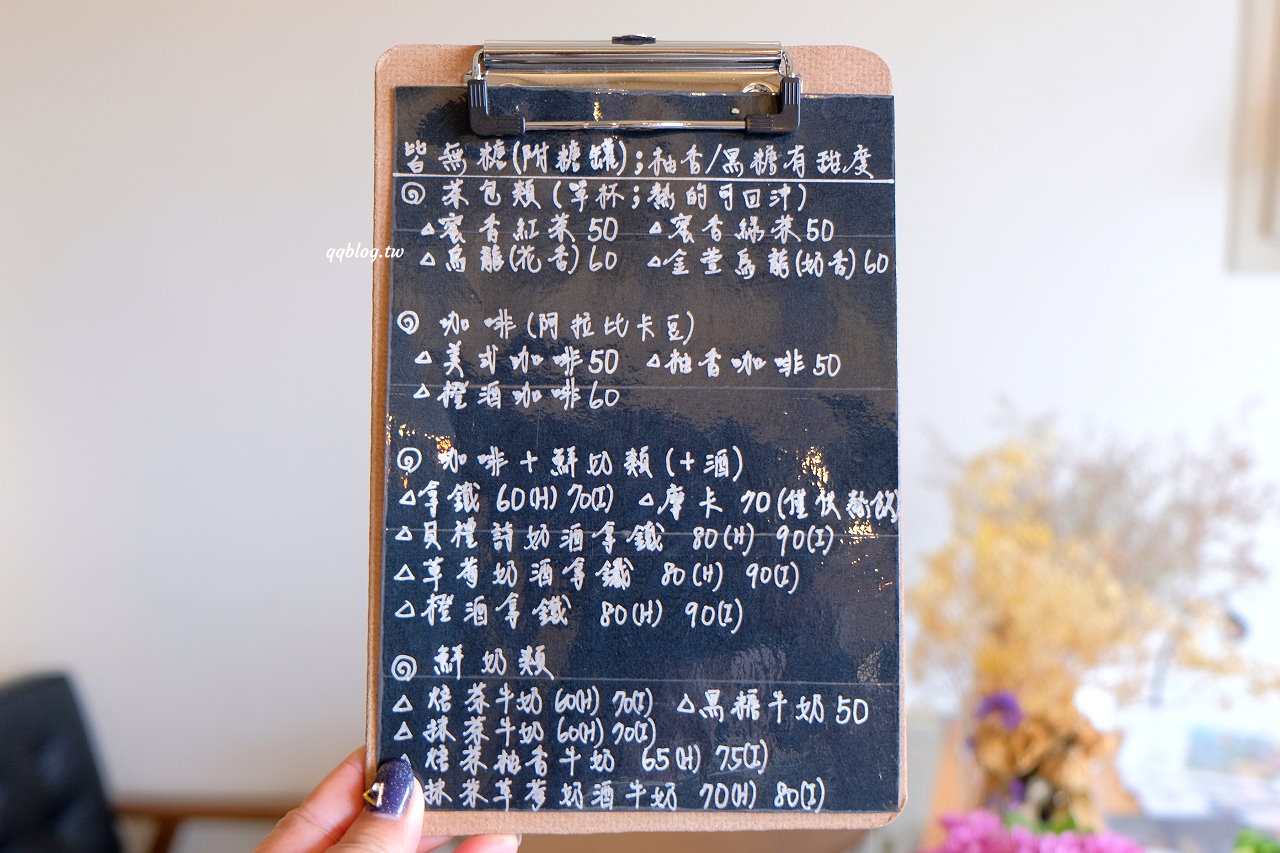 皆無糖(附糖罐);柚香/黑糖有甜度
茶包類(單杯;熱的可回沖)
△蜜香紅茶50 △蜜香綠茶50
qqblog.tw
△烏龍(花香)60 △金萱烏龍(奶香)60
咖啡(阿拉比卡豆)
△美式咖啡50 △柚香咖啡50
△橙酒咖啡60
咖啡+鮮奶類(+酒)
△拿鐵 60(H) 70(I) △摩卡 70(僅供熱飲)
△貝禮詩奶酒拿鐵 80(H) 90(I)
△草莓奶酒拿鐵 80(H) 90(I)
△橙酒拿鐵 80(H) 90(I)
鮮奶類
△焙茶牛奶 60(H) 70(I) △黑糖牛奶50
△抹茶牛奶 60(H) 70(I)
焙茶柚香牛奶 65(H) 75(I)
抹茶草莓奶酒牛奶 70(H) 80(I)